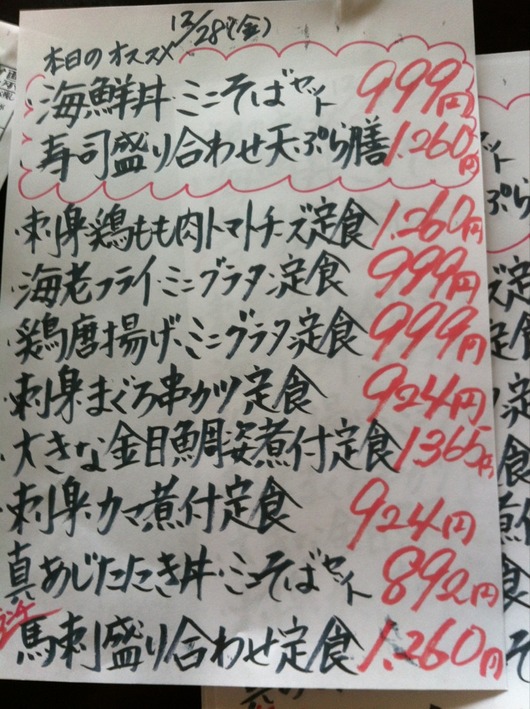 12/28(金)
本日のオススメ
海鮮丼・ミニそばセット 999円
寿司盛り合わせ天ぷら膳 1.260円
・刺身・鶏もも肉トマトチーズ定食 1.260円
・海老フライ・ミニグラタン定食 999円
・鶏唐揚げ・ミニグラタン定食 999円
・刺身・まぐろ串カツ定食 924円
・大きな金目鯛姿煮付定食 1365円
・刺身・カマ煮付定食 924円
真あじたたき丼・ミニそばセット 892円
馬刺盛り合わせ定食 1.260円